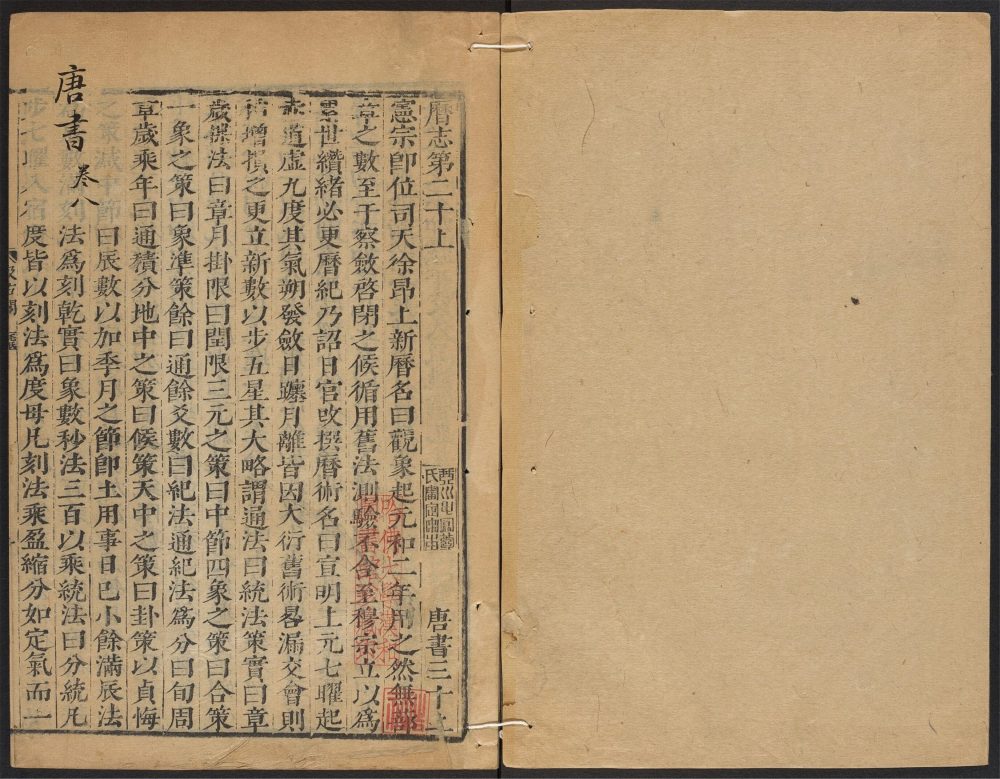 曆志第二十上 唐書三十上
憲宗卽位司天徐昂上新曆名曰觀象起元和二年用之然無蔀
章之數至于察斂啓閉之候循用舊法測驗不合至穆宗立以爲
累世纘緒必更曆紀乃詔日官改撰曆術名曰宣明上元七曜起
赤道虛九度其氣朔發斂日躔月離皆因大衍舊術晷漏交會則
稍增損之更立新數以步五星其大略謂通法曰統法策實曰章
歲揲法曰章月掛限曰閏限三元之策曰中節四象之策曰合策
一象之策曰象準策餘曰通餘爻數曰紀法通紀法爲分曰旬周
章歲乘年曰通積分地中之策曰候策天中之策曰卦策以貞悔
之策減中節曰辰數以加季月之節卽土用事日巳小餘滿辰法
法爲刻乾實曰象數秒法三百以乘統法曰分統凡
步七曜入宿度皆以刻法爲度母凡刻法乘盈縮分如定氣而一
唐書 卷八